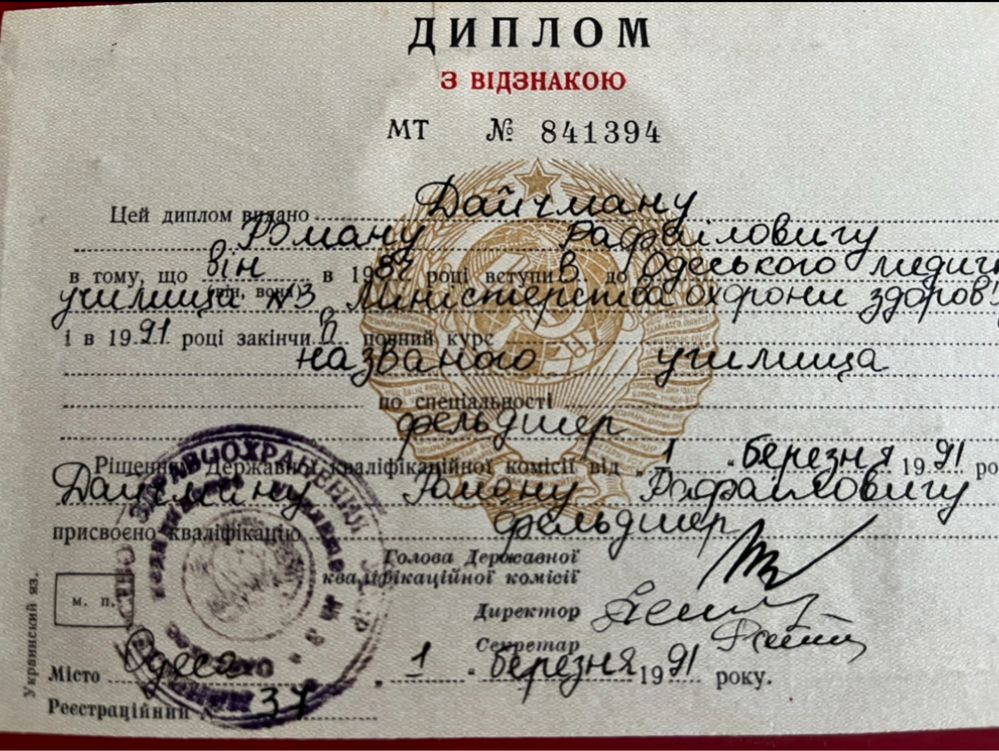 ДИПЛОМ
З ВІДЗНАКОЮ
МТ № 841394
Цей диплом видано Дайчману
Роману Рафаіловичу
в тому, що він в 1987 році вступив до Одеського медич
він, вона
училища №3 Министерства охрони здоров'
і в 1991 році закінчив повний курс
названого училища
по спеціальності
фельдшер
Рішенням Державної кваліфікаційної комісії від „1" березня 1991 ро
Дайчману Роману Рафаиловичу
присвоєно кваліфікацію фельдшер
Голова Державної
кваліфікаційної комісії
Директор
Секретар
м. п.
Місто Одеса „1" березня 1991 року.
Реєстраційний №
Украинский яз.
ЗДРАВООХРАНЕНИЯ